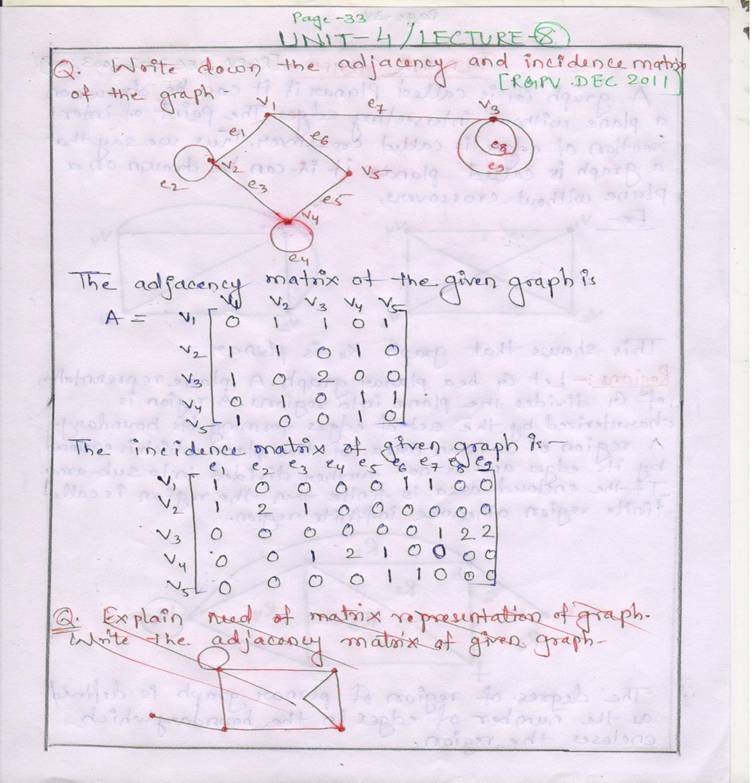 Page-33
UNIT-4/LECTURE-8
Q. Write down the adjacency and incidence matrix
of the graph [RGPV DEC 2011]
V1 e7 V3
e1 e6 e8
e2 V2 e3 V5 e9
V4 e5
e4
The adjacency matrix of the given graph is
V1 V2 V3 V4 V5
A = V1 0 1 1 0 1
V2 1 1 0 1 0
V3 1 0 2 0 0
V4 0 1 0 1 1
V5 1 0 0 1 0
The incidence matrix of given graph is-
e1 e2 e3 e4 e5 e6 e7 e8 e9
V1 1 0 0 0 0 1 1 0 0
V2 1 2 1 0 0 0 0 0 0
V3 0 0 0 0 0 0 1 2 2
V4 0 0 1 2 1 0 0 0 0
V5 0 0 0 0 1 1 0 0 0
Q. Explain need of matrix representation of graph.
Write the adjacency matrix of given graph-